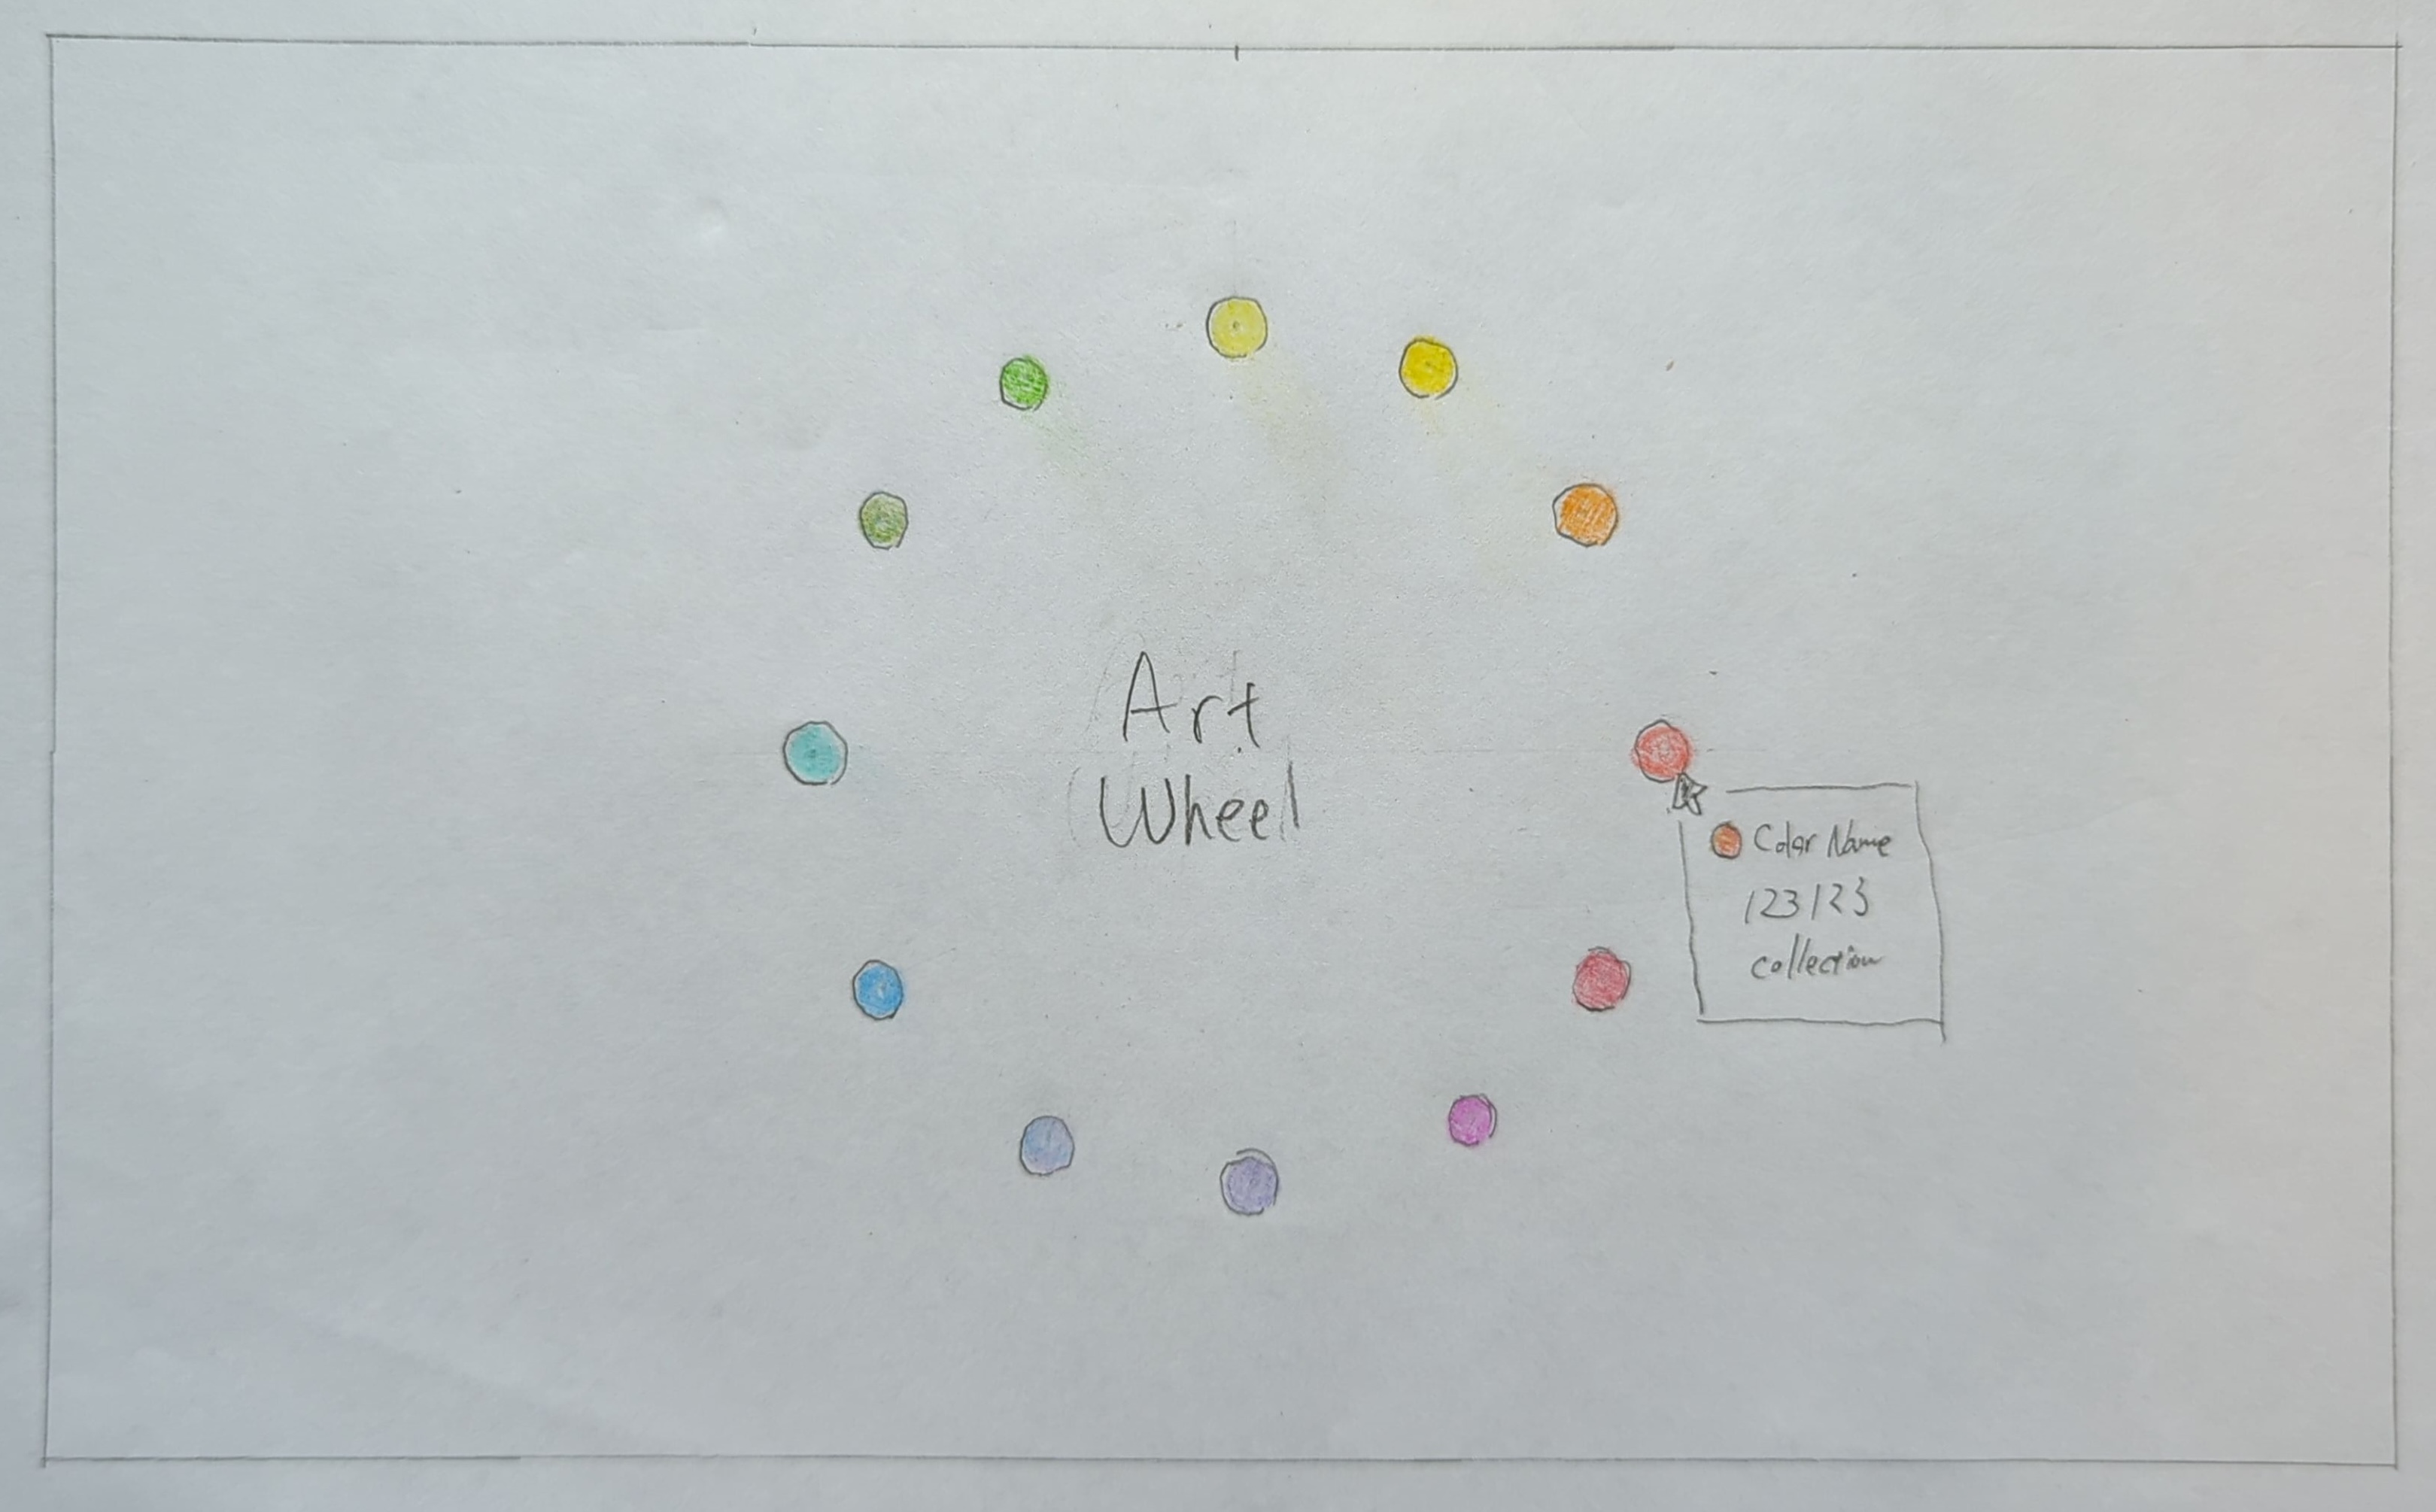 Art
Wheel
Color Name
123123
collection